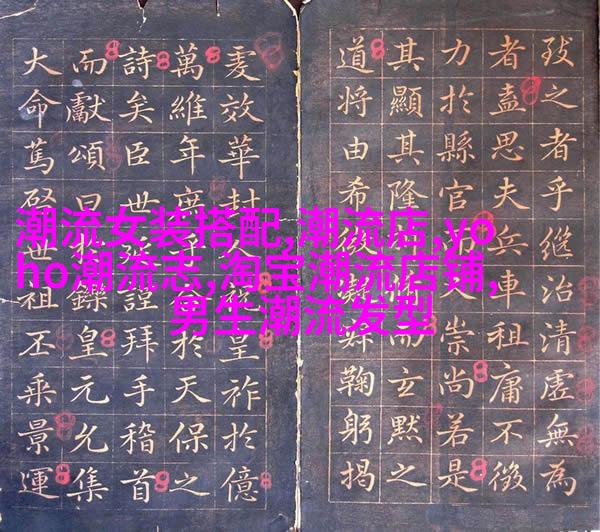 潮流女装搭配,潮流店,yo
ho潮流志,淘宝潮流店铺,
男生潮流发型
致之者乎继治清虛無為
者盍思夫兵車租庸不徵
力於縣官崇尚若是
其顯其隆而玄默之
道將由希鞠躬揭
虔效華封皇祚於億
萬維年於天保之
詩矣臣世謹拜手稽首
而獻頌曰鑠皇元允集
大命篤啓世祖丕乘景運